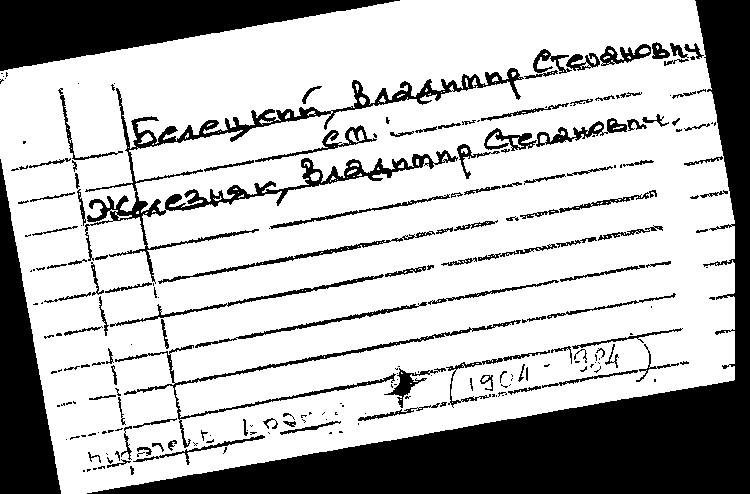 Белецкий, Владимир Степанович
см.:
Железняк, Владимир Степанович.
(1904 - 1984)
писатель,